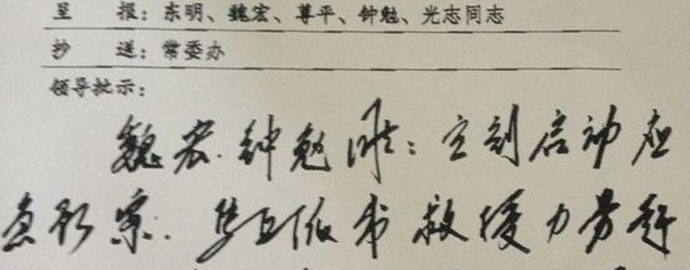 呈 报：东明、魏宏、尊平、钟勉、光志同志
抄 送：常委办
领导批示：
魏宏、钟勉同志：立刻启动应
急预案。 救援力量赶